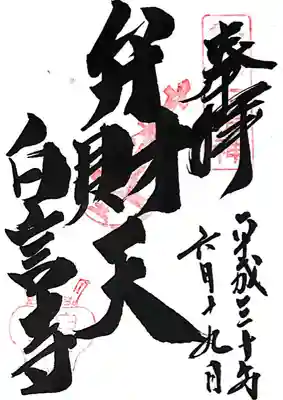 奉拝
平成三十年
六月十九日
弁財天
白言寺